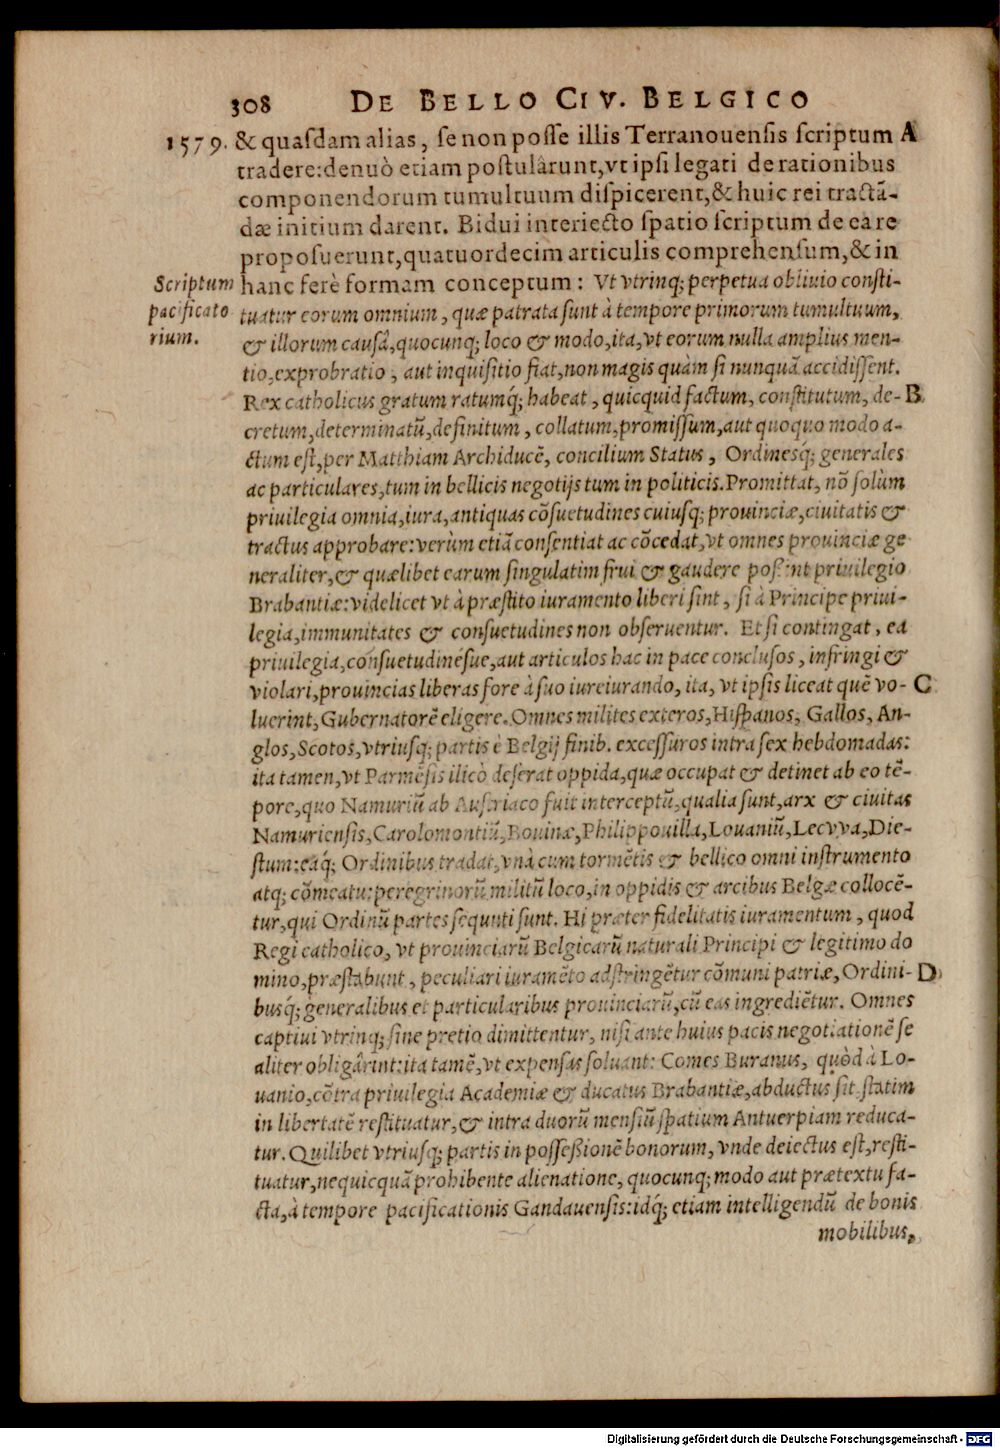 308 DE BELLO CIV. BELGICO
1579. & quasdam alias, se non posse illis Terranouensis scriptum A
tradere: denuò etiam postulârunt, vt ipsi legati de rationibus
componendorum tumultuum dispicerent, & huic rei tractã-
dæ initium darent. Bidui interiecto spatio scriptum de ea re
proposuerunt, quatuordecim articulis comprehensum, & in
Scriptum hanc ferè formam conceptum: Vt vtrinq; perpetua obliuio consti-
pacificato tuatur eorum omnium, quæ patrata sunt à tempore primorum tumultuum,
rium. & illorum causâ, quocunq; loco & modo, ita, vt eorum nulla amplius men-
tio, exprobratio, aut inquisitio fiat, non magis quàm si nunquã accidissent.
Rex catholicus gratum ratumq́; habeat, quicquid factum, constitutum, de- B
cretum, determinatũ, definitum, collatum, promissum, aut quoquo modo a-
ctum est, per Matthiam Archiducẽ, concilium Status, Ordinesq́; generales
ac particulares, tum in bellicis negotijs tum in politicis. Promittat, nõ solùm
priuilegia omnia, iura, antiquas cõsuetudines cuiusq; prouinciæ, ciuitatis &
tractus approbare: verùm etiã consentiat ac cõcedat, vt omnes prouinciæ ge
neraliter, & quælibet earum singulatim frui & gaudere possint priuilegio
Brabantiæ: videlicet vt à præstito iuramento liberi sint, si à Principe priui-
legia, immunitates & consuetudines non obseruentur. Et si contingat, ea
priuilegia, consuetudinésue, aut articulos hac in pace conclusos, infringi &
violari, prouincias liberas fore à suo iureiurando, ita, vt ipsis liceat quẽ vo- C
luerint, Gubernatorẽ eligere. Omnes milites exteros, Hispanos, Gallos, An-
glos, Scotos, vtriusq; partis è Belgij finib. excessuros intra sex hebdomadas:
ita tamen, vt Parmẽsis ilicò deserat oppida, quæ occupat & detinet ab eo tẽ-
pore, quo Namuriũ ab Austriaco fuit interceptũ, qualia sunt, arx & ciuitas
Namuriensis, Carolomontiũ, Bouinæ, Philippouilla, Louaniũ, Lecvva, Die-
stum: eaq́; Ordinibus tradat, vnà cum tormẽtis & bellico omni instrumento
atq; cõmeatu: peregrinorũ militũ loco, in oppidis & arcibus Belgæ collocẽ-
tur, qui Ordinũ partes sequuti sunt. Hi præter fidelitatis iuramentum, quod
Regi catholico, vt prouinciarũ Belgicarũ naturali Principi & legitimo do
mino, præstabunt, peculiari iuramẽto adstringẽtur cõmuni patriæ, Ordini- D
busq́; generalibus et particularibus prouinciarũ, cũ eas ingrediẽtur. Omnes
captiui vtrinq; sine pretio dimittentur, nisi ante huius pacis negotiationẽ se
aliter obligârint: ita tamẽ, vt expensas soluant: Comes Buranus, quòd à Lo-
uanio, cõtra priuilegia Academiæ & ducatus Brabantiæ, abductus sit, statim
in libertatẽ restituatur, & intra duorũ mensiũ spatium Antuerpiam reduca-
tur. Quilibet vtriusq; partis in possessionẽ bonorum, vnde deiectus est, resti-
tuatur, nequicquã prohibente alienatione, quocunq; modo aut prætextu fa-
cta, à tempore pacificationis Gandauensis: idq́; etiam intelligendũ de bonis
mobilibus,
Digitalisierung gefördert durch die Deutsche Forschungsgemeinschaft - DFG